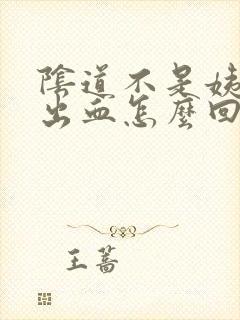 陰道不是姨
出血怎麼回
王蔷